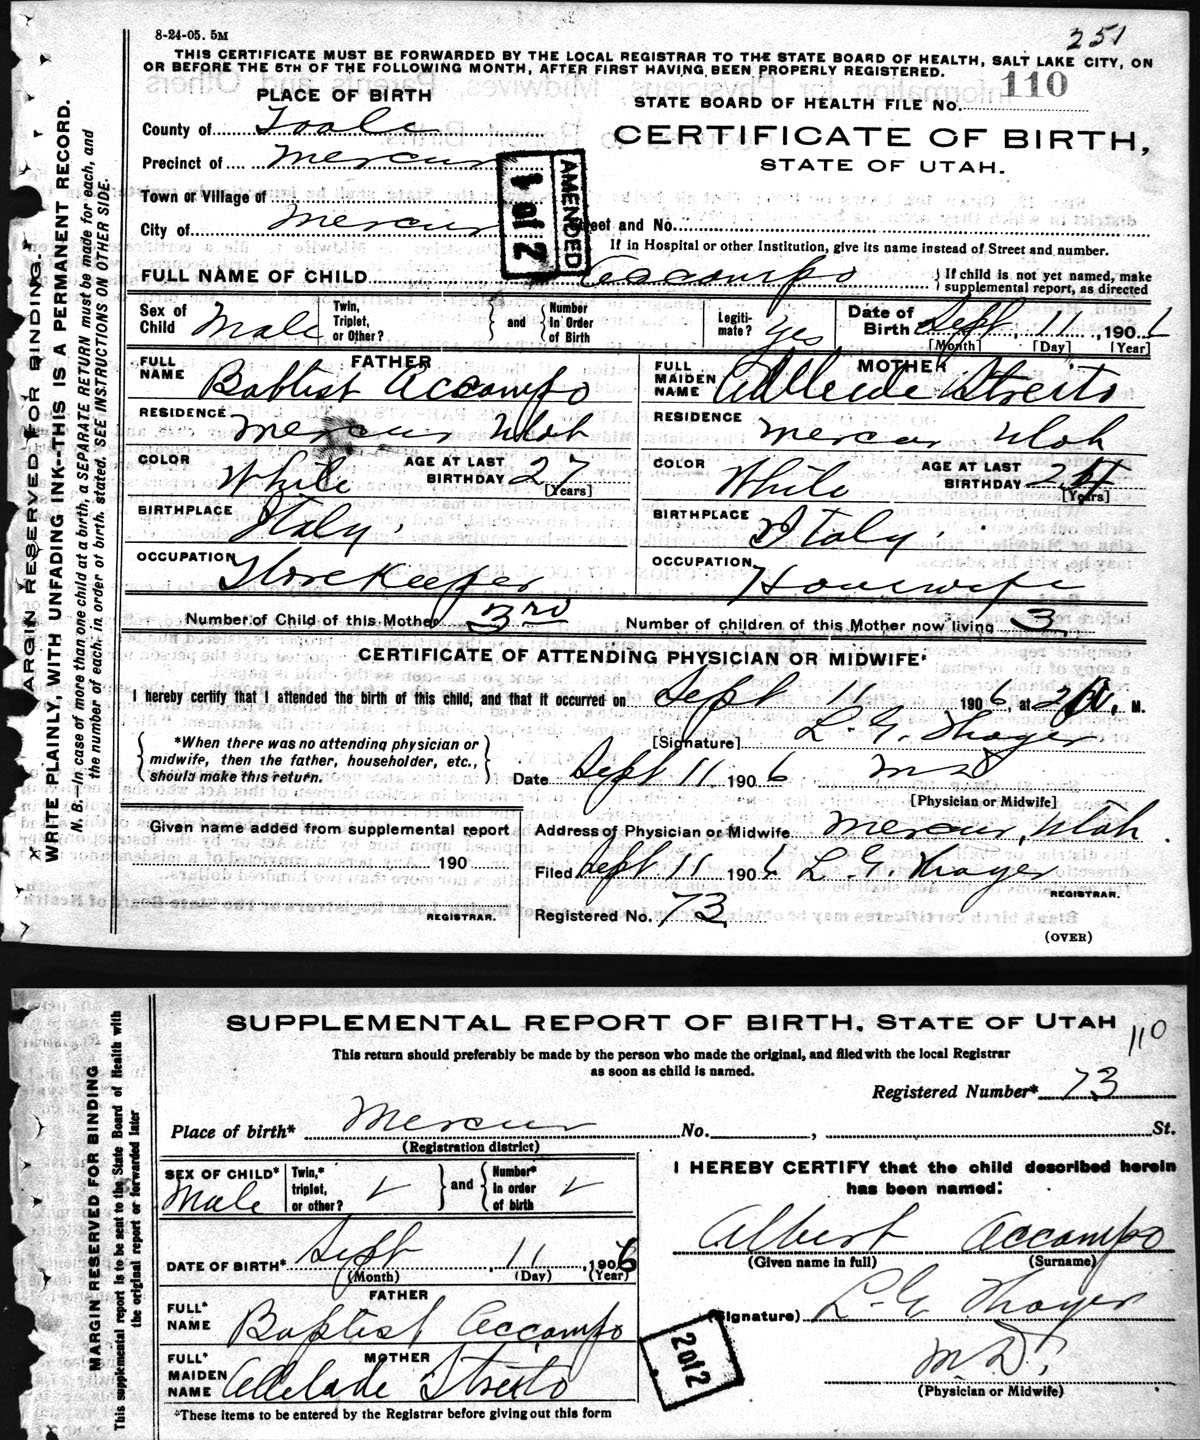 8-24-05. 5M
251
THIS CERTIFICATE MUST BE FORWARDED BY THE LOCAL REGISTRAR TO THE STATE BOARD OF HEALTH, SALT LAKE CITY, ON
OR BEFORE THE 5TH OF THE FOLLOWING MONTH, AFTER FIRST HAVING BEEN PROPERLY REGISTERED.
PLACE OF BIRTH
STATE BOARD OF HEALTH FILE No. 110
County of Tooele
CERTIFICATE OF BIRTH,
Precinct of Mercur
STATE OF UTAH.
AMENDED
1 of 2
Town or Village of
City of Mercur
Street and No.
If in Hospital or other Institution, give its name instead of Street and number.
FULL NAME OF CHILD Accampo
If child is not yet named, make
supplemental report, as directed
Sex of Child Male
Twin, Triplet, or Other?
and
Number in Order of Birth
Legiti-mate? yes
Date of Birth Sept 11, 1906
[Month] [Day] [Year]
FATHER
FULL NAME Baptist Accampo
MOTHER
FULL MAIDEN NAME Streito
RESIDENCE Mercur Utah
RESIDENCE Mercur Utah
COLOR White
AGE AT LAST BIRTHDAY 27
[Years]
COLOR White
AGE AT LAST BIRTHDAY 24
[Years]
BIRTHPLACE Italy.
BIRTHPLACE Italy.
OCCUPATION Storekeeper
OCCUPATION Housewife
Number of Child of this Mother 3rd
Number of children of this Mother now living 3
CERTIFICATE OF ATTENDING PHYSICIAN OR MIDWIFE*
I hereby certify that I attended the birth of this child, and that it occurred on Sept 11 1906, at M.
*When there was no attending physician or
midwife, then the father, householder, etc.,
should make this return.
[Signature] L. G. Thayer
Date Sept 11 1906 MD
[Physician or Midwife]
Given name added from supplemental report
190
REGISTRAR.
Address of Physician or Midwife Mercur, Utah.
Filed Sept 11 1906 L. G. Thayer
REGISTRAR.
Registered No. 73
(OVER)
MARGIN RESERVED FOR BINDING.
WRITE PLAINLY, WITH UNFADING INK--THIS IS A PERMANENT RECORD.
N. B.—In case of more than one child at a birth, a SEPARATE RETURN must be made for each, and
the number of each, in order of birth, stated. SEE INSTRUCTIONS ON OTHER SIDE.
SUPPLEMENTAL REPORT OF BIRTH, STATE OF UTAH
110
This return should preferably be made by the person who made the original, and filed with the local Registrar
as soon as child is named.
Registered Number* 73
Place of birth* Mercur No. , St.
(Registration district)
SEX OF CHILD* Male
Twin,* triplet, or other?
and
Number* in order of birth
I HEREBY CERTIFY that the child described herein
has been named:
Albert Accampo
(Given name in full) (Surname)
DATE OF BIRTH* Sept 11, 1906
(Month) (Day) (Year)
FATHER
FULL* NAME Baptist Accampo
(Signature) L. G. Thayer
2 of 2
M.D.
(Physician or Midwife)
MOTHER
FULL* MAIDEN NAME Adelade Streito
*These items to be entered by the Registrar before giving out this form
MARGIN RESERVED FOR BINDING
This supplemental report is to be sent to the State Board of Health with
the original report or forwarded later